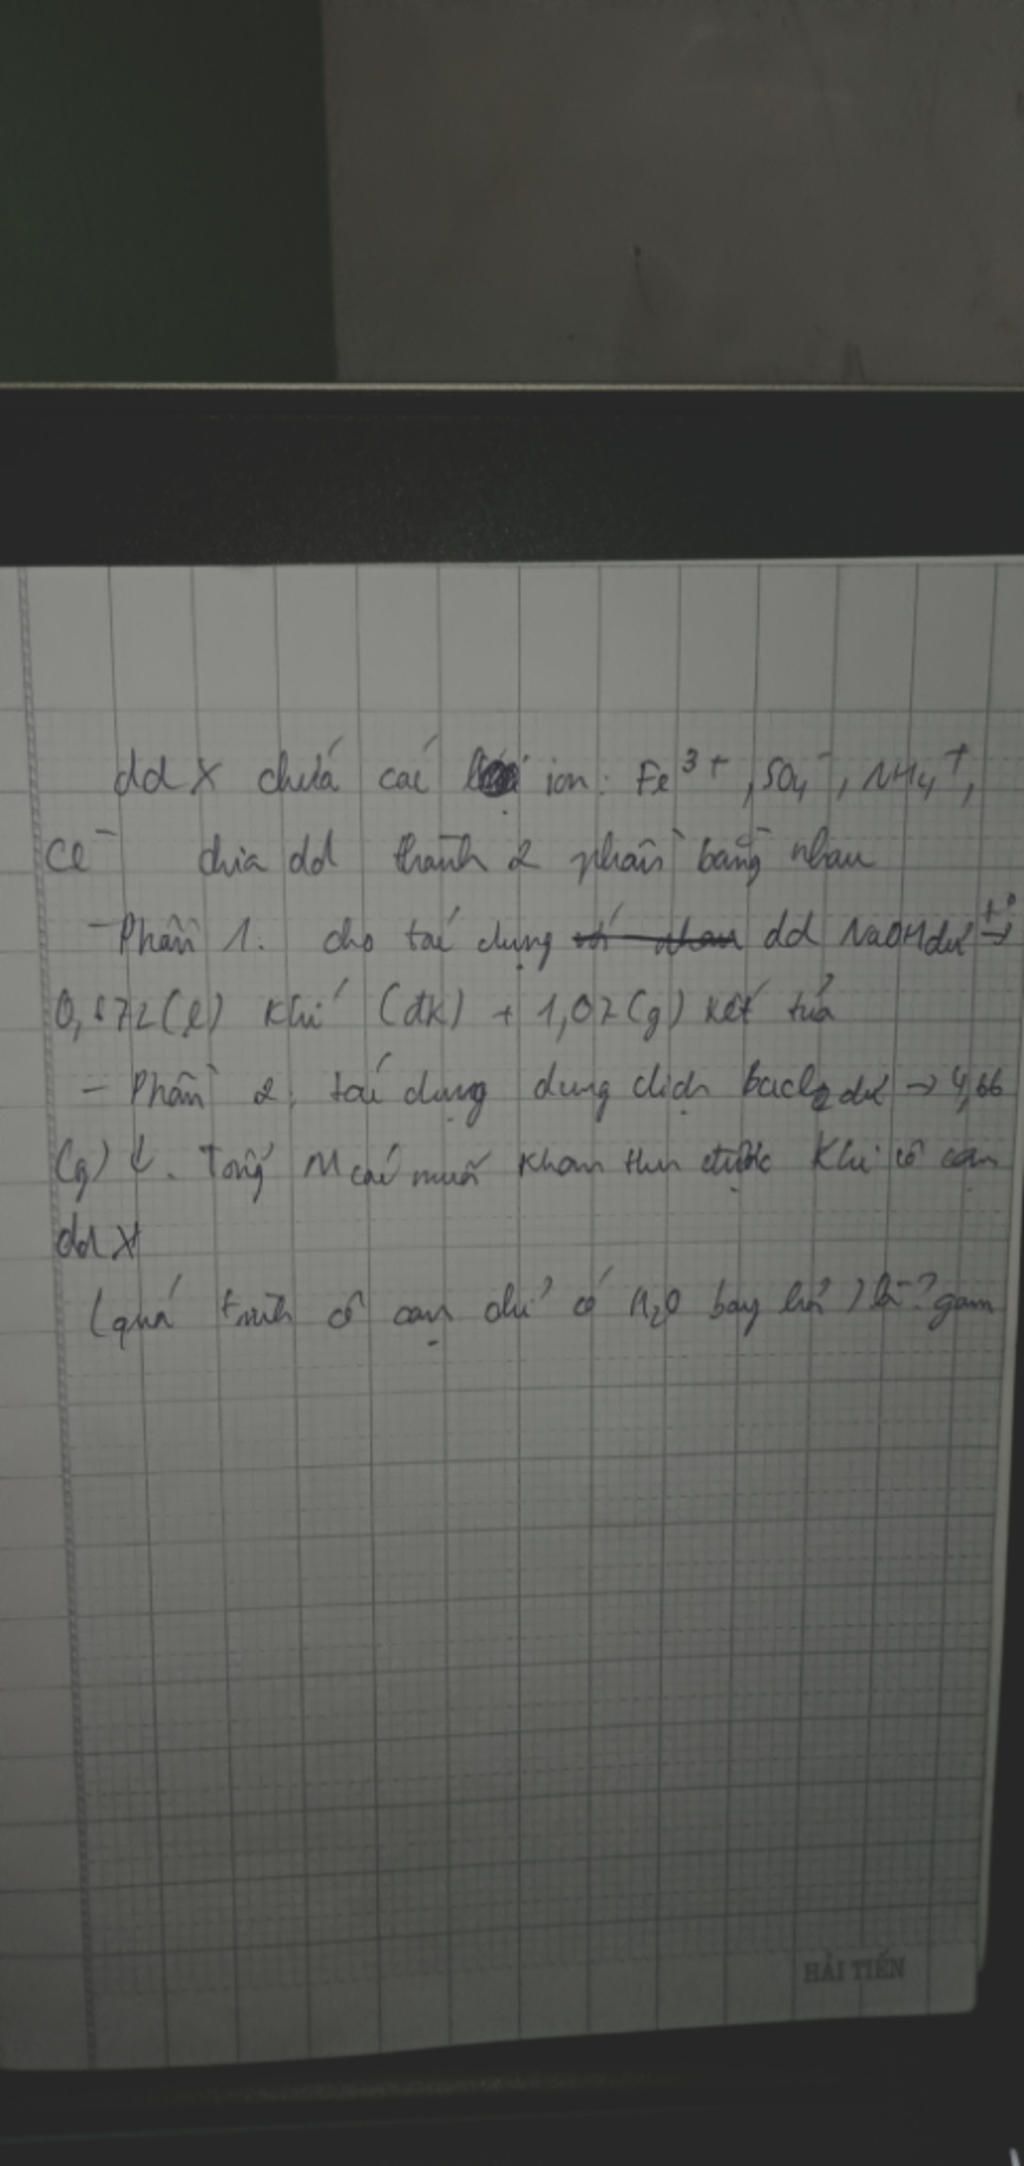 dd X chứa các ion: Fe³⁺, SO₄⁻, NH₄⁺,
Cl⁻ chia dd thành 2 phần bằng nhau
- Phần 1. cho tác dụng dd NaOH dư t° →
0,672(l) khí (đk) + 1,07(g) kết tủa
- Phần 2, tác dụng dung dịch bacl₂ dư → 4,66
(g) ↓. Tổng m các muối khan thu được khi cô cạn
dd X
(quá trình cô cạn chỉ có H₂O bay hơi) là? gam
HẢI TIẾN